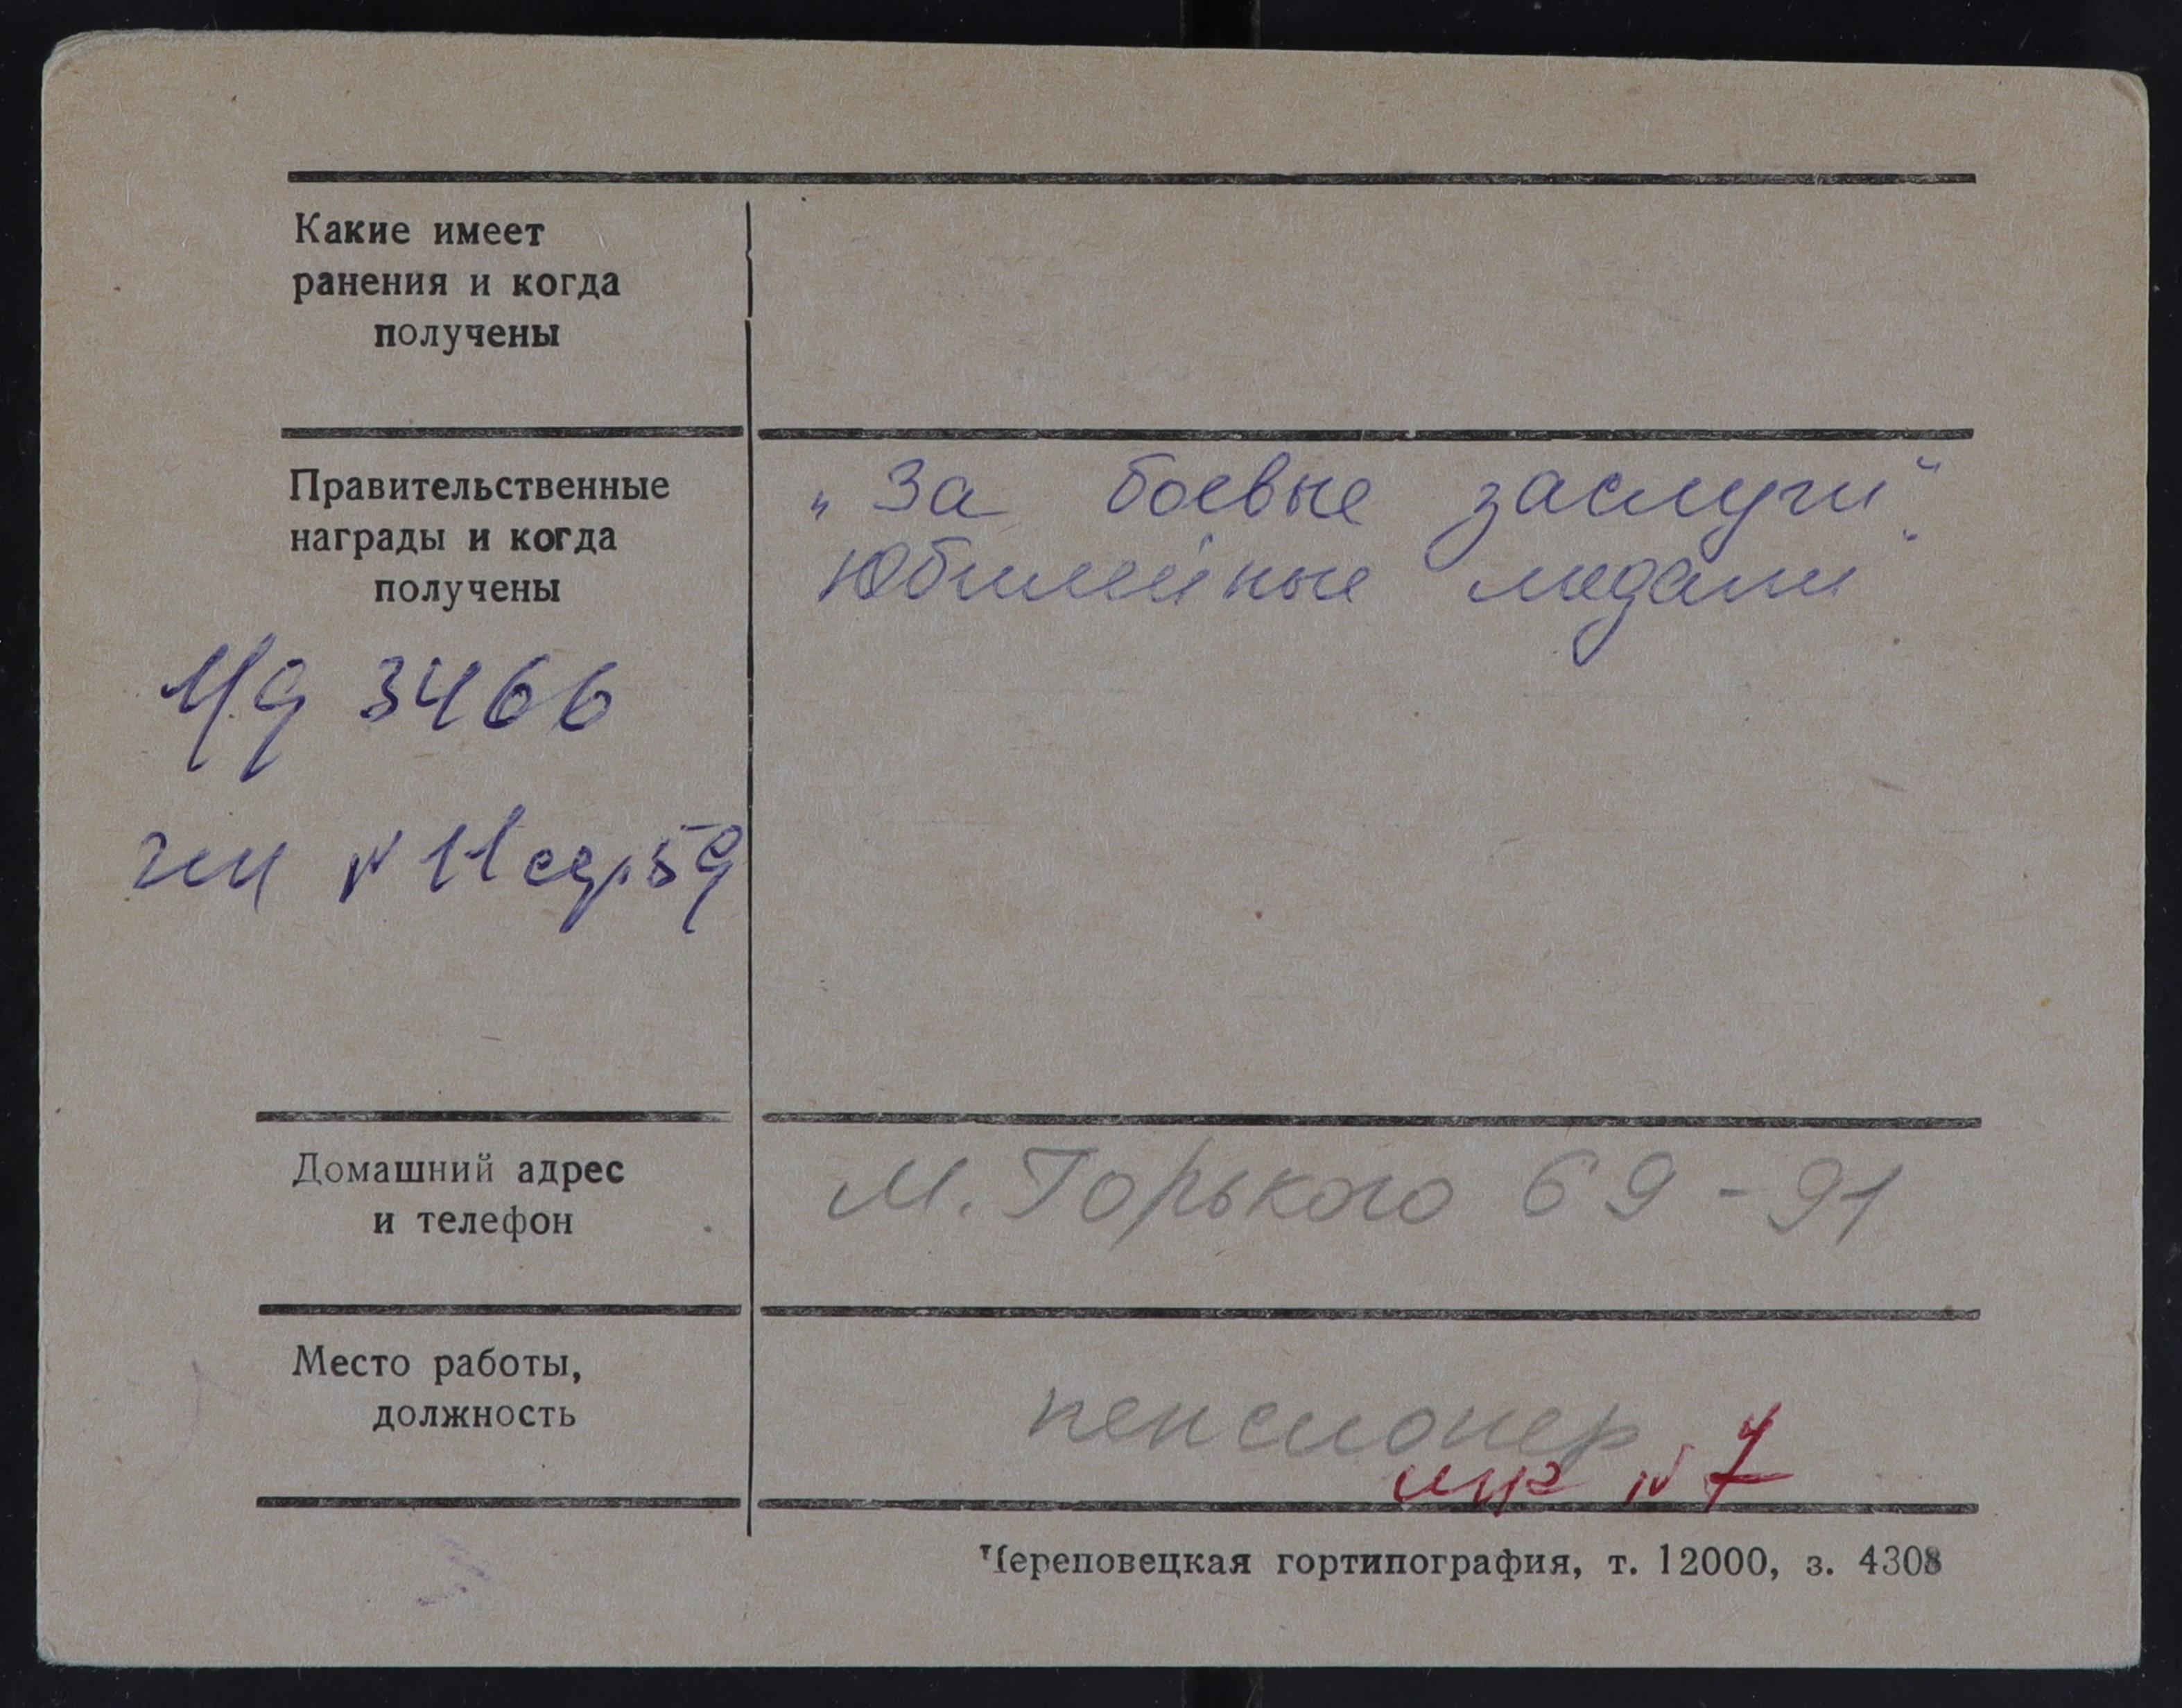 Какие имеет
ранения и когда
получены
Правительственные
награды и когда
получены
„За боевые заслуги“
Юбилейные медали
3466
N 11 стр 59
Домашний адрес
и телефон
М. Горького 69-91
Место работы,
должность
пенсионер
N 7
Череповецкая гортипография, т. 12000, з. 4308